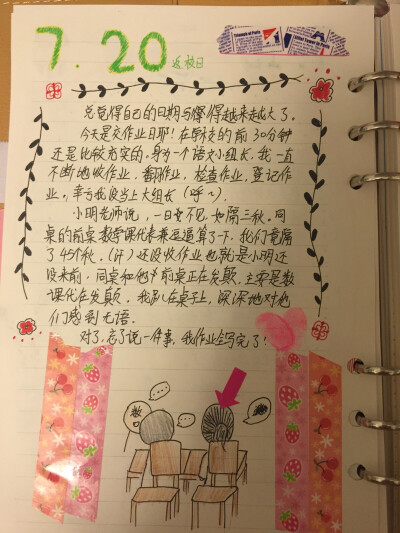 7.20 返校日
总觉得自己的日期写得越来越大了。
今天是交作业日耶！在学校的前30分钟
还是比较充实的，身为一个语文小组长，我一直
不断地收作业，翻作业，检查作业，登记作
业。幸亏我没当上大组长（呼~）
小明老师说，一日不见，如隔三秋。同
桌的前桌数学课代表兼运算了一下，我们竟隔
了45个秋，（汗）还没收作业也就是小明还
没来前，同桌和他的前桌正在发颠，主要是数
课代在发颠，我趴在桌子上，深深地对他
们感到无语。
对了，忘了说一件事，我作业全写完了！
数